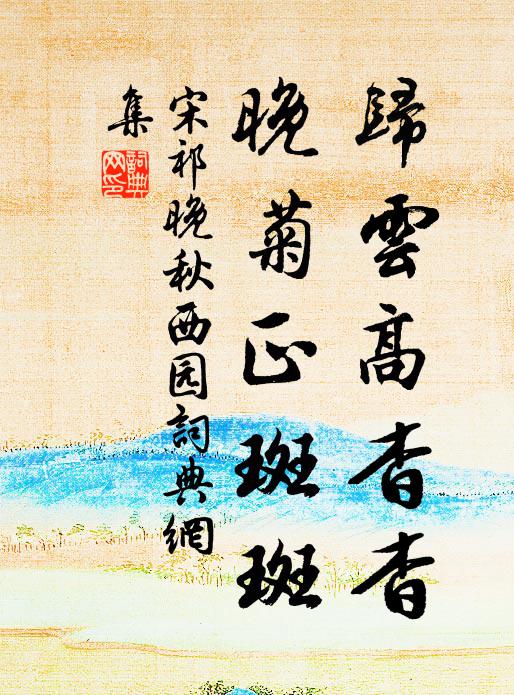 歸雲高杳杳
晚菊正斑斑
宋祁晚秋西园詞典網
集
詞典
网印